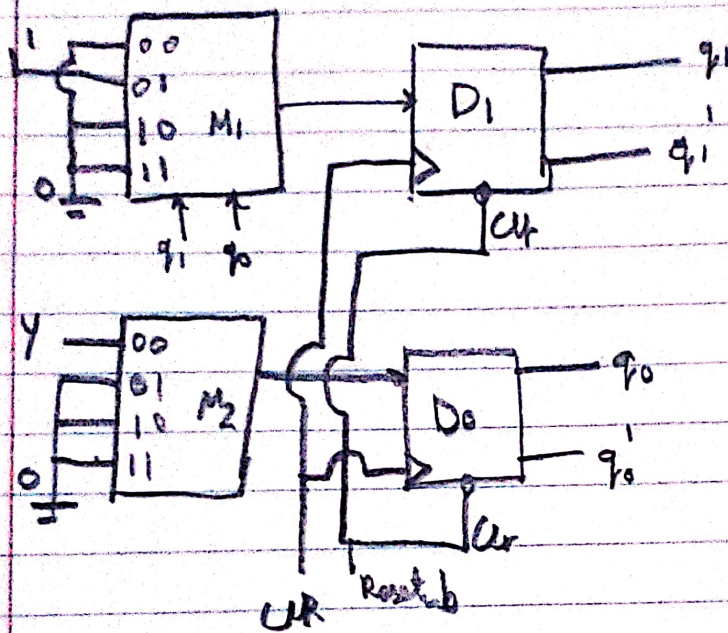 1
00
01
10
11
M1
0
q1 q0
D1
q1
q1'
Clr
Y
00
01
10
11
M2
0
D0
q0
q0'
Clr
Clk
Reset_b